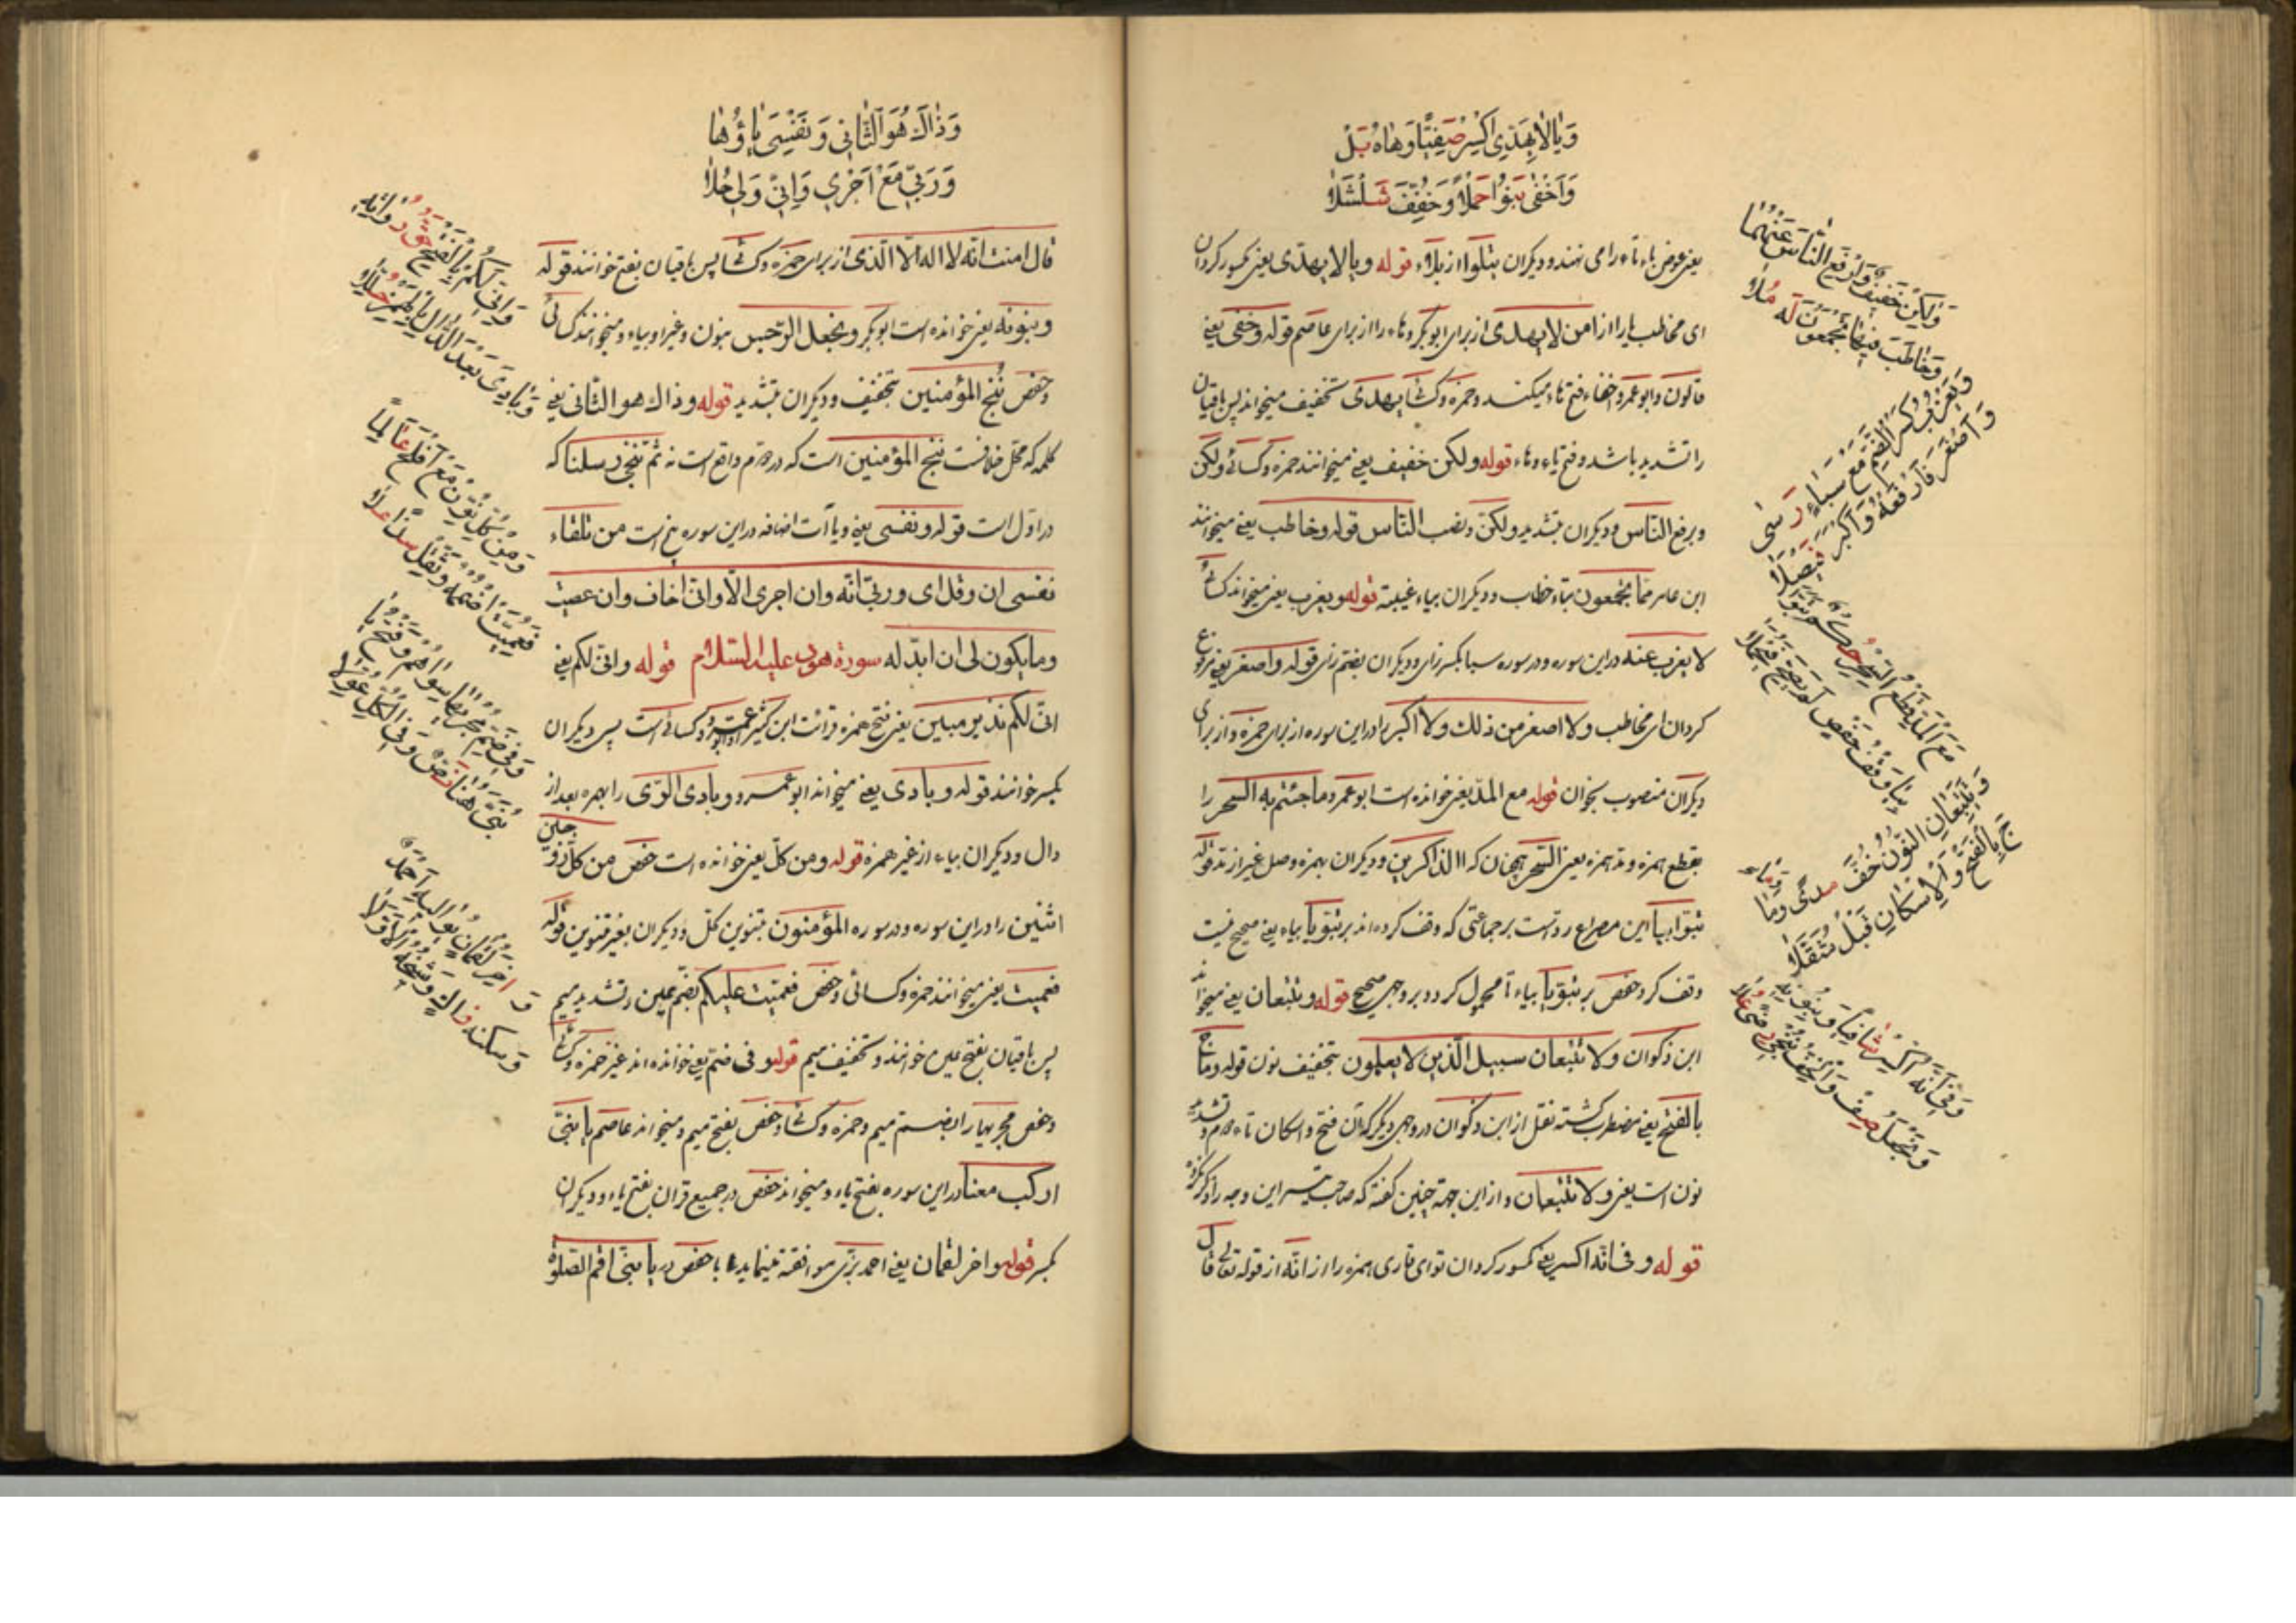 وَيَا لَا يَهَدِّي اكْسِرْ صَفِيًّا وَهَاهُ نَلْ
وَأَخْفَى بَنُو حَمْدٍ وَخُفِّفَ شُلْشُلَا
یعنی عوض باء تاء را می نهند و دیکران یتلوا از بلاء قوله ویا لا یهدّی یعنی کسور کردان
ای مخاطب یا را از امن لا یهدی از برای ابوبکر و هاء را از برای عاصم قوله وخفی یعنی
قالون وابوعمرو اخفاء فتح هاء میکنند وحمزه وکسائی یهدی بتخفیف میخوانند پس باقیان
را تشدید باشد وفتح یاء وهاء قوله ولکن خفیف یعنی میخوانند حمزه وکسائی ولکن
وبرفع النّاس ودیکران بتشدید ولکنّ ونصب النّاس قوله وخاطب یعنی میخوانند
ابن عامر ممّا یجمعون بتاء خطاب ودیکران بیاء غیبة قوله ویعزب یعنی میخواند کسائی
لا یعزب عنه در این سوره ودر سوره سبا بکسر زای ودیکران بضم زای قوله واصغر یعنی مرفوع
کردان ای مخاطب ولا اصغر من ذلك ولا اکبر را در این سوره از برای حمزه واز برای
دیکران منصوب بخوان قوله مع المدّ یعنی خوانده است ابوعمرو ما جئتم به السحر را
بقطع همزه ومد همزه یعنی السّحر همچنان که االذاکرین ودیکران بهمزه وصل غیر از مد قوله
تبوّا بیا این مصراع ردّ است بر جماعتی که وقف کرده اند بر تبوّیا بیاء یعنی صحیح نیست
وقف کرد حفص بر تبوّیا بیاء تا محمول کردد بر وجهی صحیح قوله وتتّبعان یعنی میخواند
ابن ذکوان ولا تتّبعان سبیل الّذین لا یعلمون بتخفیف نون قوله وماج
بالفتح یعنی مضطرب کشته نقل از ابن ذکوان در وجهی دیکر که آن فتح واسکان تاء دوم وتشدید
نون است یعنی ولا تتبعان واز این جهة چنین کفته که صاحب تیسیر این وجه را ذکر نکرده
قوله وفی انّه اکسر یعنی کسور کردان تو ای قاری همزه را از انّه از قوله تعالی قال
وَلَكِنْ خَفِيفٌ وَارْفَعِ النَّاسَ عَنْهُمَا
وَخَاطَبَ فِيهَا يَجْمَعُونَ لَهُ مُلَا
وَيَعْزُبُ كَسْرُ الضَّمِّ مَعْ سَبَاءٍ رَسَى
وَأَصْغَرَ فَارْفَعْهُ وَأَكْبَرَ فَيْصَلَا
مَعَ الْمَدِّ قَطْعُ السِّحْرِ حُكْمٌ تَبَوَّا
بِيَا وَقْفُ حَفْصٍ لَمْ يَصِحَّ فَيُحْمَلَا
وَتَتَّبِعَانِ النُّونُ خَفَّ مَدًى وَمَا
جَ بِالْفَتْحِ وَالْإِسْكَانِ قَبْلُ مُثَقَّلَا
وَفِي أَنَّهُ اكْسِرْ شَافِيًا وَبِنُونِهِ
وَنَجْعَلُ صِفْ وَالْخِفُّ نُنْجِ رِضًى عَلَا
وَذَاكَ هُوَ الثَّانِي وَنَفْسِيَ يَاؤُهَا
وَرَبِّيَ مَعْ أَجْرِي وَإِنِّي وَلِي حُلَا
قال امنت انّه لا اله الّا الّذی از برای حمزه وکسائی پس باقیان بفتح خوانند قوله
وبنونه یعنی خوانده است ابوبکر ونجعل الرّجس بنون وغیر او بیاء ومیخوانند کسائی
وحفص ننج المؤمنین بتخفیف ودیکران بتشدید قوله وذاك هو الثّانی یعنی
کلمه که محل خلافست ننج المؤمنین است که در دوم واقع است نه ثمّ ننجّی رسلنا که
در اوّل است قوله ونفسی یعنی ویاآت اضافه در این سوره پنج است من تلقاء
نفسی ان وقل ای وربّی انّه وان اجری الّا وانّی اخاف وان عصیت
وما یکون لی ان ابدّله سورة هود علیه السّلام قوله وانّی لکم یعنی
انّی لکم نذیر مبین یعنی بفتح همزه قرائت ابن کثیر وابوعمرو وکسائی است پس دیکران
بکسر خوانند قوله وبادی یعنی میخواند ابوعمرو وبادی الرّای را بهمزه بعد از
دال ودیکران بیاء از غیر همزه قوله ومن کلّ یعنی خوانده است حفص من کلّ زوجین
اثنین را در این سوره ودر سوره المؤمنون بتنوین کلّ ودیکران بغیر تنوین قوله
فعمیت یعنی میخوانند حمزه وکسائی وحفص فعمّیت علیکم بضم عین وتشدید میم
پس باقیان بفتح عین خوانند وتخفیف میم قوله وفی ضمّ یعنی خوانده اند غیر حمزه وکسائی
وحفص مجریها را بضمّ میم وحمزه وکسائی وحفص بفتح میم ومیخواند عاصم یا بنیّ
ارکب معنا در این سوره بفتح یاء ومیخواند حفص در جمیع قران بفتح یاء ودیکران
بکسر قوله واخر لقمان یعنی احمد بزّی موافقة مینماید با حفص در یا بنیّ اقم الصّلوة
وَإِنِّي لَكُمْ بِالْفَتْحِ حَقُّ رُوَاتِهِ
وَبَادِئَ بَعْدَ الدَّالِ بِالْهَمْزِ حُلِّلَا
وَمِنْ كُلِّ نَوِّنْ مَعْ قَدَ افْلَحَ عَالِمًا
فَعُمِّيَتْ اضْمُمْهُ وَثَقِّلْ شَذًا عَلَا
وَفِي ضَمِّ مَجْرَاهَا سِوَاهُمْ وَفَتْحُ يَا
بُنَيَّ هُنَا نَصٌّ وَفِي الْكُلِّ عُوِّلَا
وَآخِرَ لُقْمَانٍ يُوَالِيهِ أَحْمَدُ
وَسَكَّنَهُ زَاكٍ وَشَيْخُهُ الْأَوَّلَا